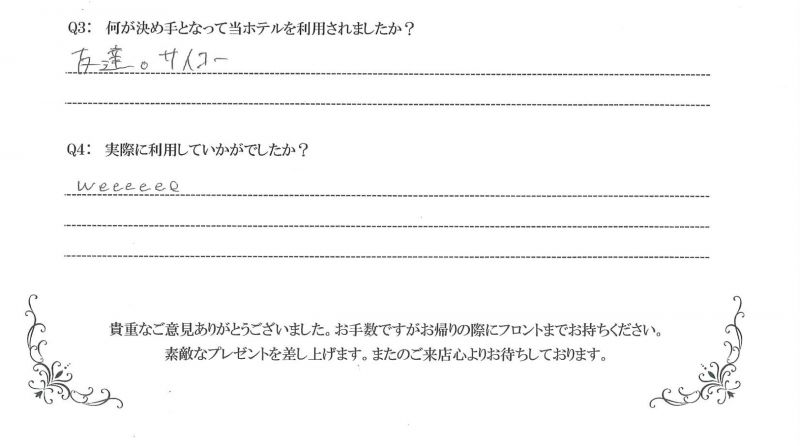 Q3： 何が決め手となって当ホテルを利用されましたか？
友達。サイコー
Q4： 実際に利用していかがでしたか？
weeeeee
貴重なご意見ありがとうございました。お手数ですがお帰りの際にフロントまでお持ちください。
素敵なプレゼントを差し上げます。またのご来店心よりお待ちしております。